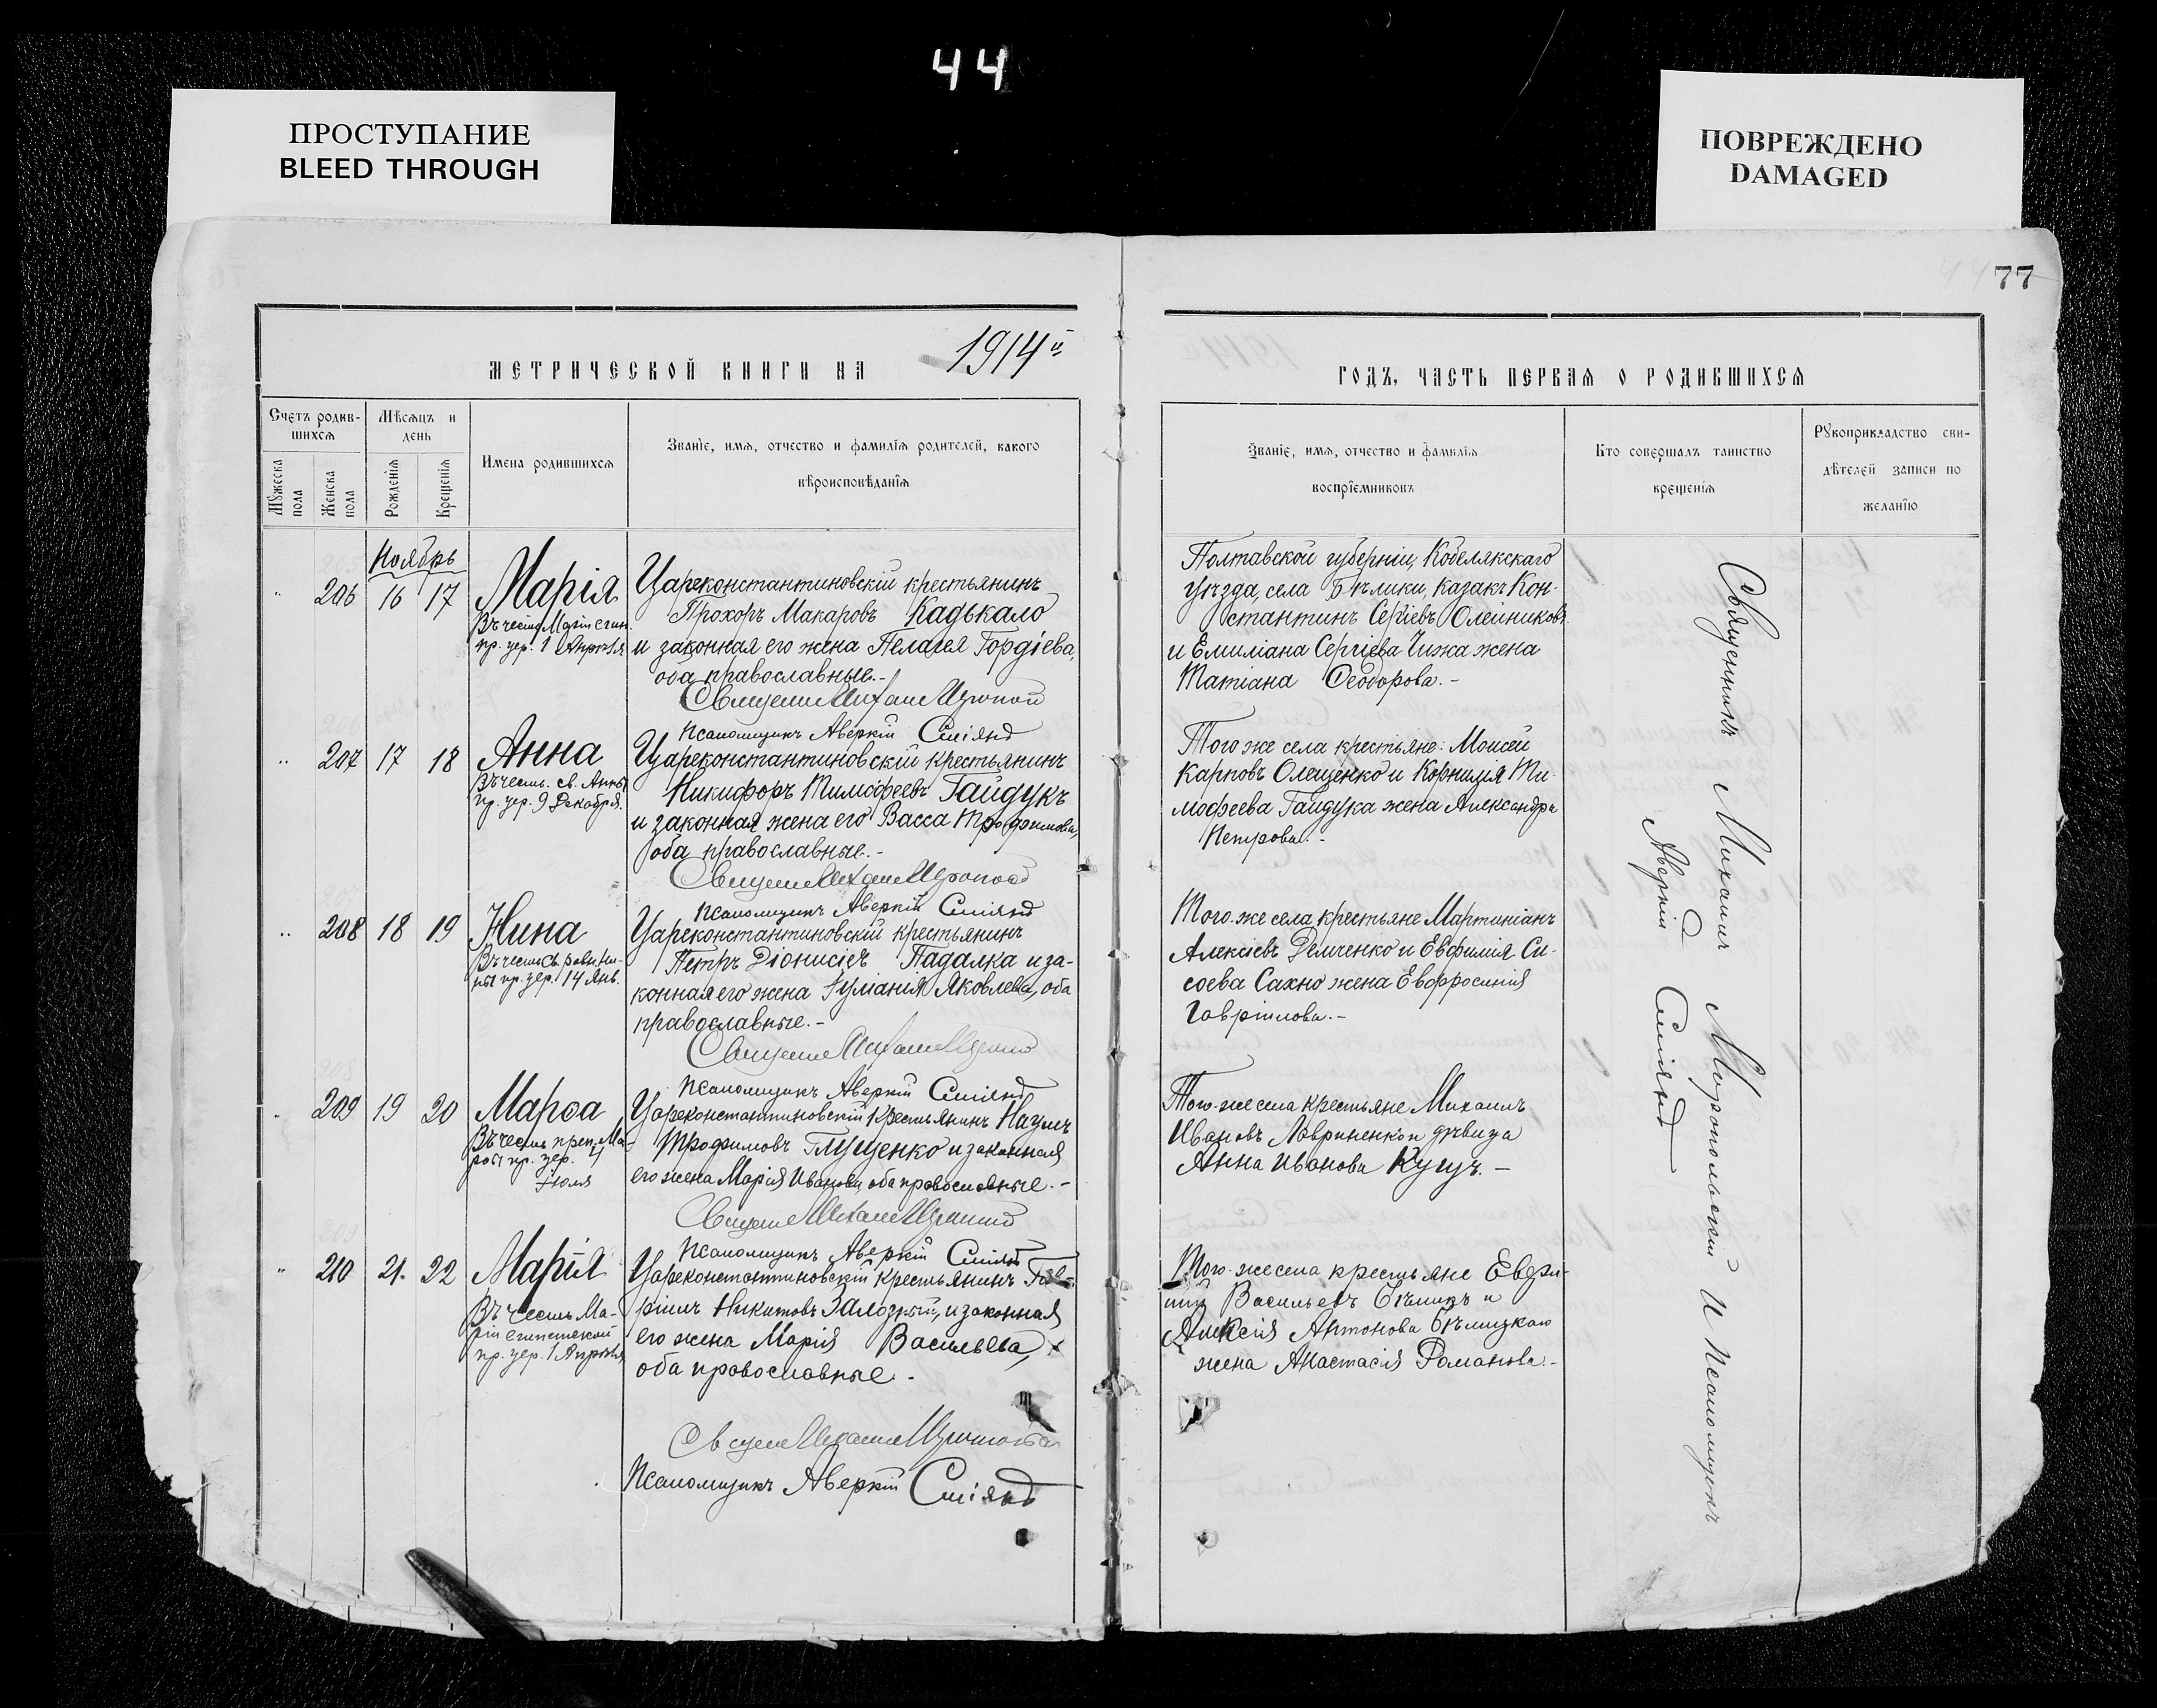 44
ПРОСТУПАНИЕ
BLEED THROUGH
ПОВРЕЖДЕНО
DAMAGED
77
МЕТРИЧЕСКОЙ КНИГИ НА 1914й
ГОДЪ, ЧАСТЬ ПЕРВАЯ О РОДИВШИХСЯ
Счетъ родив-
шихся
Мужеска пола
Женска пола
Мѣсяцъ и
день
Рожденія
Крещенія
Имена родившихся
Званіе, имя, отчество и фамилія родителей, какого
вѣроисповѣданія
Званіе, имя, отчество и фамилія
воспріемниковъ
Кто совершалъ таинство
крещенія
Рукоприкладство сви-
дѣтелей записи по
желанію
Ноябрь
206 16 17
Марія
Въ честь Маріи егип.
пр. цер. 1 Апрѣля
Цареконстантиновскій крестьянинъ
Прохоръ Макаровъ Кадькало
и законная его жена Пелагея Гордіева,
оба православные.-
Псаломщикъ Аверкій Сміянъ
Полтавской губерніи, Кобелякскаго
уѣзда, села Бѣлики, казакъ Кон-
стантинъ Сергіевъ Олейниковъ
и Емиліана Сергіева Чижа жена
Татіана Ѳеодорова.-
207 17 18
Анна
Въ честь св. Анны
пр. цер. 9 Декабря.
Цареконстантиновскій крестьянинъ
Никифоръ Тимоѳеевъ Гайдукъ
и законная жена его Васса Трофимова,
оба православные.-
Псаломщикъ Аверкій Сміянъ
Того же села крестьяне: Моисей
Карповъ Олещенко и Корнилія Ти-
мофеева Гайдука жена Александра
Петрова.-
208 18 19
Нина
Въ честь св. равн. Ни-
ны пр. цер. 14 Янв.
Цареконстантиновскій крестьянинъ
Петръ Діонисіевъ Падалка и за-
конная его жена Іуліанія Яковлева, оба
православные.-
Псаломщикъ Аверкій Сміянъ
Того-же села крестьяне Мартиніанъ
Алексіевъ Демченко и Евфимія Си-
соева Сахно жена Евфросинія
Гавріилова.-
209 19 20
Марѳа
Въ честь преп. Ма-
рѳы пр. цер.
Іюля
Цареконстантиновскій крестьянинъ Наумъ
Трофимовъ Глущенко и законная
его жена Марія Иванова, оба православные.-
Псаломщикъ Аверкій Сміянъ
Того-же села крестьяне Михаилъ
Ивановъ Лавриненко и дѣвица
Анна Иванова Куцъ.-
210 21. 22
Марія
Въ честь Ма-
ріи египетской
пр. цер. 1 Апрѣля
Цареконстантиновскій крестьянинъ Гав-
ріилъ Никитовъ Залозный, и законная
его жена Марія Васильева,
оба православные -
Псаломщикъ Аверкій Сміянъ
Того-же села крестьяне
Васильевъ Бѣликъ и
Алексія Антонова Бѣлицкаго
жена Анастасія Романова.-
Священникъ Михаилъ Миропольскій и Псаломщикъ
Аверкій Сміянъ